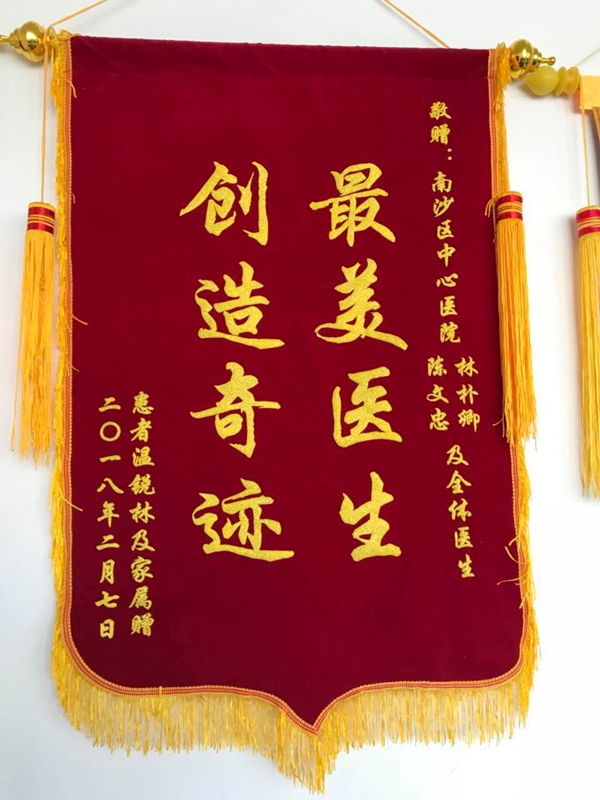 敬赠：南沙区中心医院 林朴卿 陈文忠 及全体医生
最美医生
创造奇迹
患者温锐林及家属赠
二〇一八年二月七日